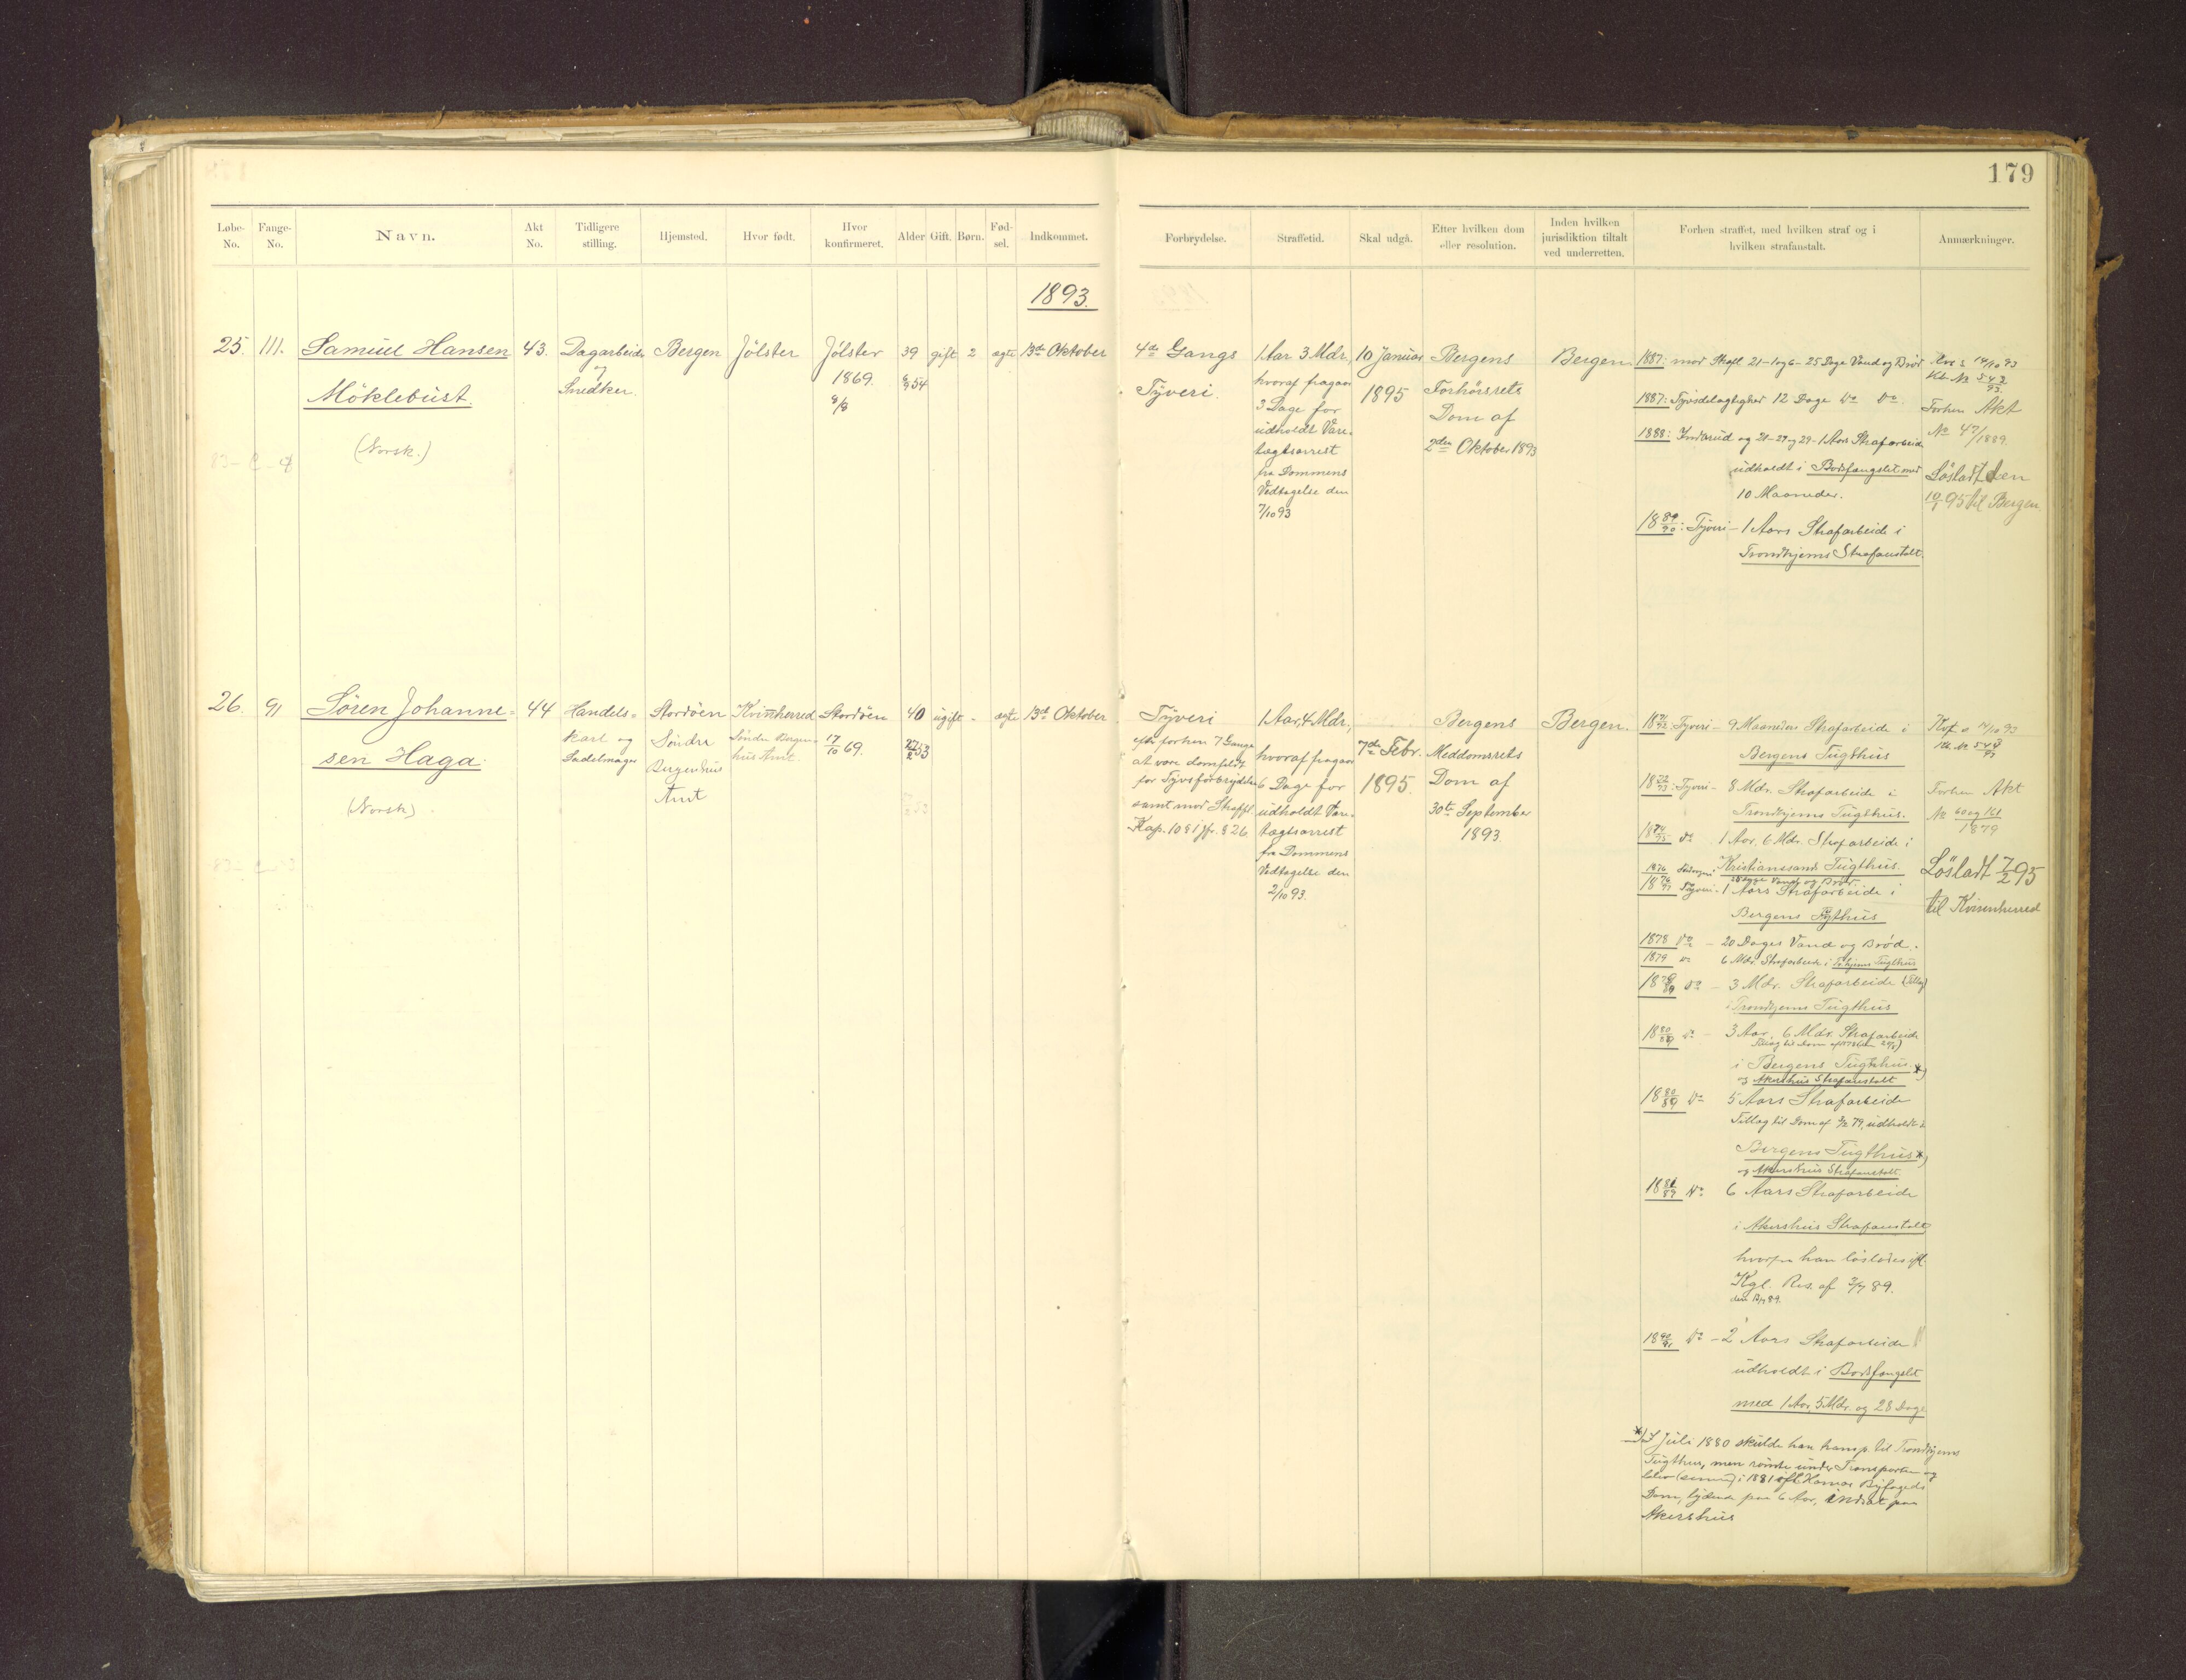 179
Løbe-No.
Fange-No.
Navn.
Akt No.
Tidligere stilling.
Hjemsted.
Hvor født.
Hvor konfirmeret.
Alder
Gift.
Børn.
Fød-sel.
Indkommet.
Forbrydelse.
Straffetid.
Skal udgå.
Efter hvilken dom eller resolution.
Inden hvilken jurisdiktion tiltalt ved underretten.
Forhen straffet, med hvilken straf og i hvilken strafanstalt.
Anmærkninger.
1893.
25.
111.
Samuel Hansen
Möklebust.
(Norsk.)
43.
Dagarbeider
og
Snedker.
Bergen
Jölster
Jölster
1869.
39
gift
2
ægte
13de Oktober
4de Gangs
Tyveri.
1 Aar 3 Mdr,
hvoraf fragaar
3 Dage for
udholdt Vare-
tægtsarrest
fra Dommens
Vedtagelse den
7/10 93
10 Januar
1895
Bergens
Forhörsrets
Dom af
2den Oktober 1893
Bergen
1887: mod Straffl. 21-1 og 6- 25 Dage Vand og Bröd
1887: Tyvsdelagtighed 12 Dage do do.
1888: Indbrud og 21-27 og 29- 1 Aars Strafarbeide
udholdt i Bodsfængslet med
10 Maaneder.
18 89/90: Tyveri - 1 Aars Strafarbeide i
Trondhjems Strafanstalt.
14/10 93
Forhen Akt
No 47/1889.
Lösladt den
10/1 95 til Bergen
26.
91
Sören Johanne=
sen Haga.
(Norsk)
44
Handels=
karl og
Sadelmager
Stordöen
Söndre
Bergenhus
Amt
Kvinherred
Söndre Bergen=
hus Amt.
Stordöen
17/10 69.
40
27/2 53
ugift
-
ægte
13de Oktober
Tyveri
efter forhen 7 Gange
at være domfeldt
for Tyvsforbrydelse
samt mod Straffl.
Kap. 10 § 1 jfr. § 26.
1 Aar, 4 Mdr.,
hvoraf fragaar
6 Dage for
udholdt Vare-
tægtsarrest
fra Dommens
Vedtagelse den
2/10 93.
7de Febr.
1895.
Bergens
Meddomsrets
Dom af
30te September
1893.
Bergen.
Tyveri - 9 Maaneders Strafarbeide i
Bergens Tugthus
18 72/73: Tyveri - 8 Mdr. Strafarbeide i
Trondhjems Tugthus.
18 74/75 do 1 Aar, 6 Mdr. Strafarbeide i
Kristianssands Tugthus.
1876
Vand og Bröd
18 76/77 Tyveri - 1 Aars Strafarbeide i
Bergens Tugthus
1878 do - 20 Dages Vand og Bröd.
1879 do 6 Mdr. Strafarbeide i Tr.hjems Tugthus
do - 3 Mdr. Strafarbeide (Tillæg)
i Trondhjems Tugthus
18 80/89 do - 3 Aar, 6 Mdr. Strafarbeide
i Bergens Tugthus *)
og Akershus Strafanstalt
18 80/89 do 5 Aars Strafarbeide
Tillæg til Dom af 79, udholdt i
Bergens Tugthus *)
og Akershus Strafanstalt.
18 81/89 do 6 Aars Strafarbeide
i Akershus Strafanstalt
hvorfra han löslodes ifl.
Kgl. Res. af 89.
18 90/91 do - 2 Aars Strafarbeide
udholdt i Bodsfængslet
med 1 Aar, 5 Mdr. og 28 Dage
*) I Juli 1880 skulde han transp. til Trondhjems
Tugthus, men römte under Transporten og
blev i 1881 ifl. Hamar Byfogeds
Dom, lydende paa 6 Aar, indsat paa
Akershus
14/10 93
Forhen Akt
No 60 og 161
1879
Lösladt 7/2 95
til Kvinnherred